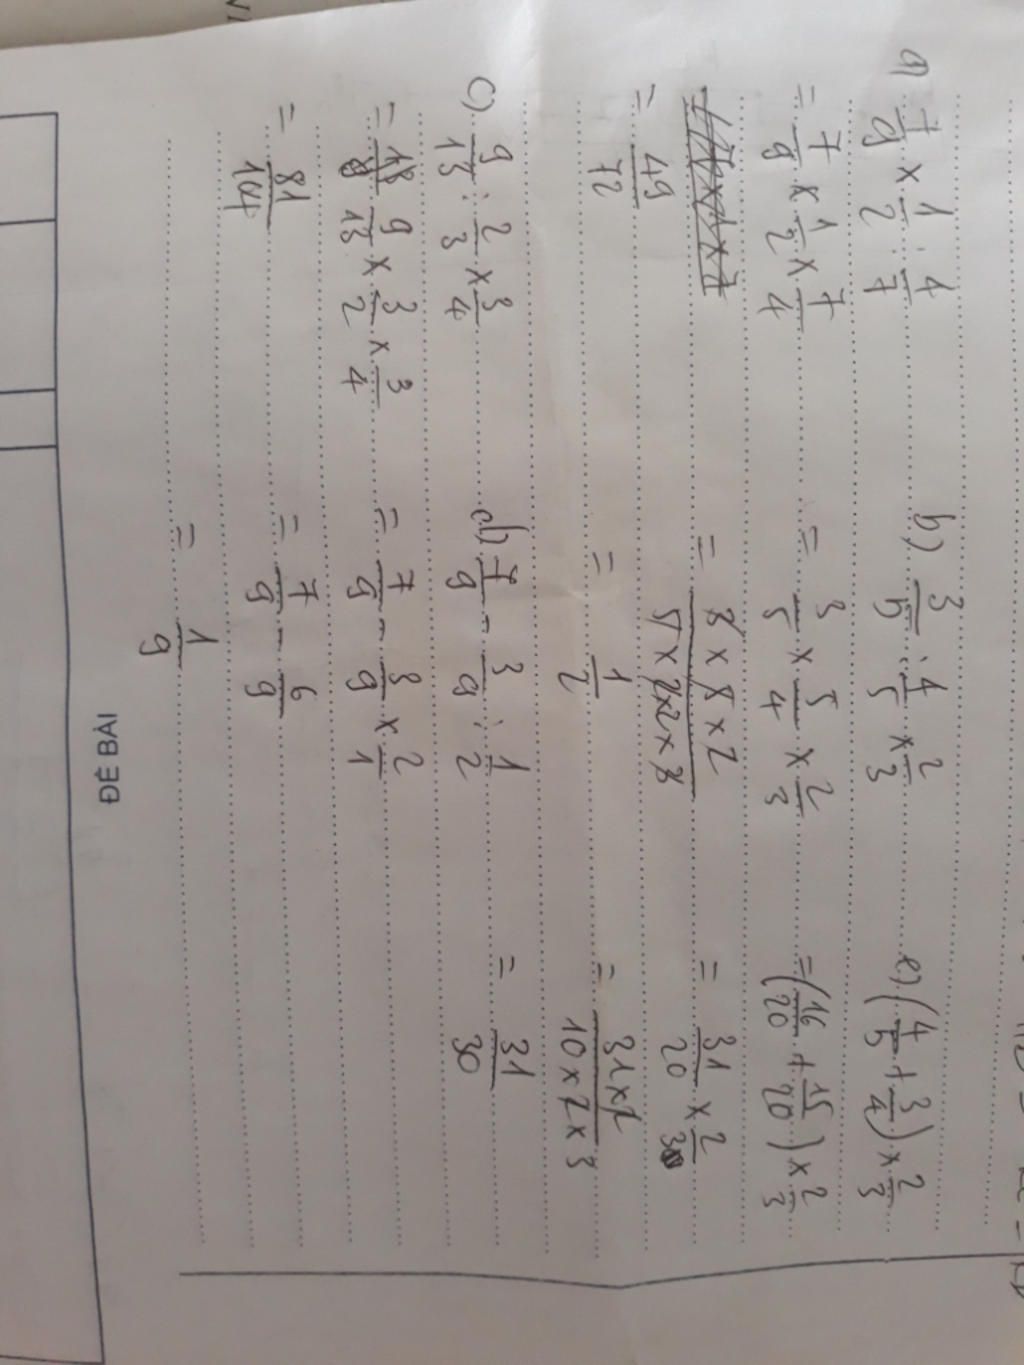 a) 7/9 × 1/2 : 4/7
= 7/9 × 1/2 × 7/4
= 49/72
b) 3/5 : 4/5 × 2/3
= 3/5 × 5/4 × 2/3
= 3 × 5 × 2 / 5 × 2 × 2 × 3
= 1/2
e) (4/5 + 3/4) × 2/3
= (16/20 + 15/20) × 2/3
= 31/20 × 2/3
= 31 × 2 / 10 × 2 × 3
= 31/30
c) 9/13 : 2/3 × 3/4
= 9/13 × 3/2 × 3/4
= 81/104
d) 7/9 - 3/9 : 1/2
= 7/9 - 3/9 × 2/1
= 7/9 - 6/9
= 1/9
ĐỀ BÀI